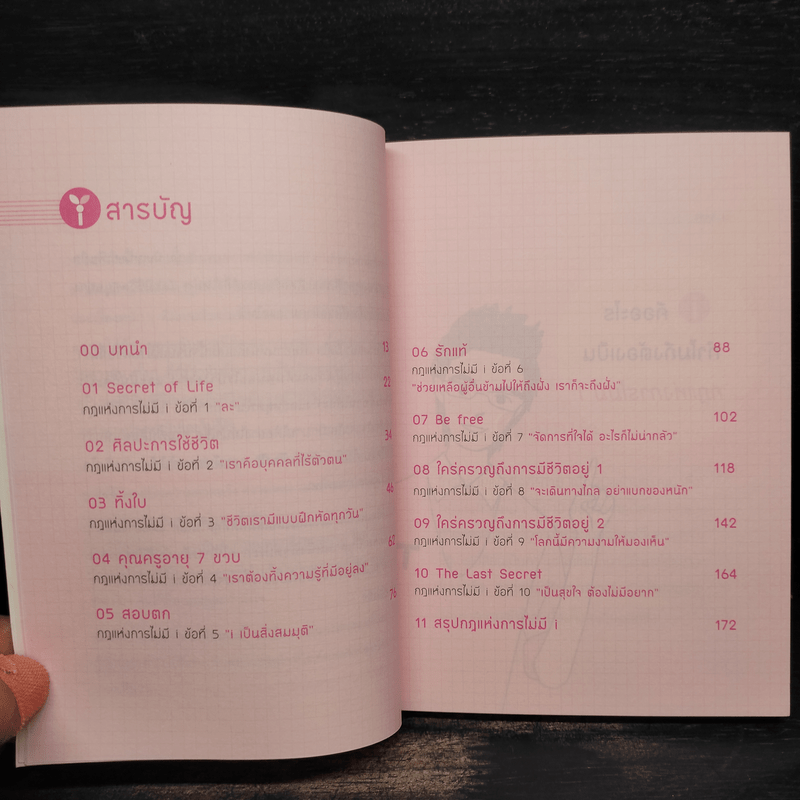 สารบัญ
00 บทนำ 13
01 Secret of Life 22
กฎแห่งการไม่มี i ข้อที่ 1 "ละ"
02 ศิลปะการใช้ชีวิต 34
กฎแห่งการไม่มี i ข้อที่ 2 "เราคือบุคคลที่ไร้ตัวตน"
03 ทิ้งใบ 46
กฎแห่งการไม่มี i ข้อที่ 3 "ชีวิตเรามีแบบฝึกหัดทุกวัน"
04 คุณครูอายุ 7 ขวบ 62
กฎแห่งการไม่มี i ข้อที่ 4 "เราต้องทิ้งความรู้ที่มีอยู่ลง"
05 สอบตก 76
กฎแห่งการไม่มี i ข้อที่ 5 "i เป็นสิ่งสมมุติ"
06 รักแท้ 88
กฎแห่งการไม่มี i ข้อที่ 6
"ช่วยเหลือผู้อื่นข้ามไปให้ถึงฝั่ง เราก็จะถึงฝั่ง"
07 Be free 102
กฎแห่งการไม่มี i ข้อที่ 7 "จัดการที่ใจได้ อะไรก็ไม่น่ากลัว"
08 ใคร่ครวญถึงการมีชีวิตอยู่ 1 118
กฎแห่งการไม่มี i ข้อที่ 8 "จะเดินทางไกล อย่าแบกของหนัก"
09 ใคร่ครวญถึงการมีชีวิตอยู่ 2 142
กฎแห่งการไม่มี i ข้อที่ 9 "โลกนี้มีความงามให้มองเห็น"
10 The Last Secret 164
กฎแห่งการไม่มี i ข้อที่ 10 "เป็นสุขใจ ต้องไม่มีอยาก"
11 สรุปกฎแห่งการไม่มี i 172